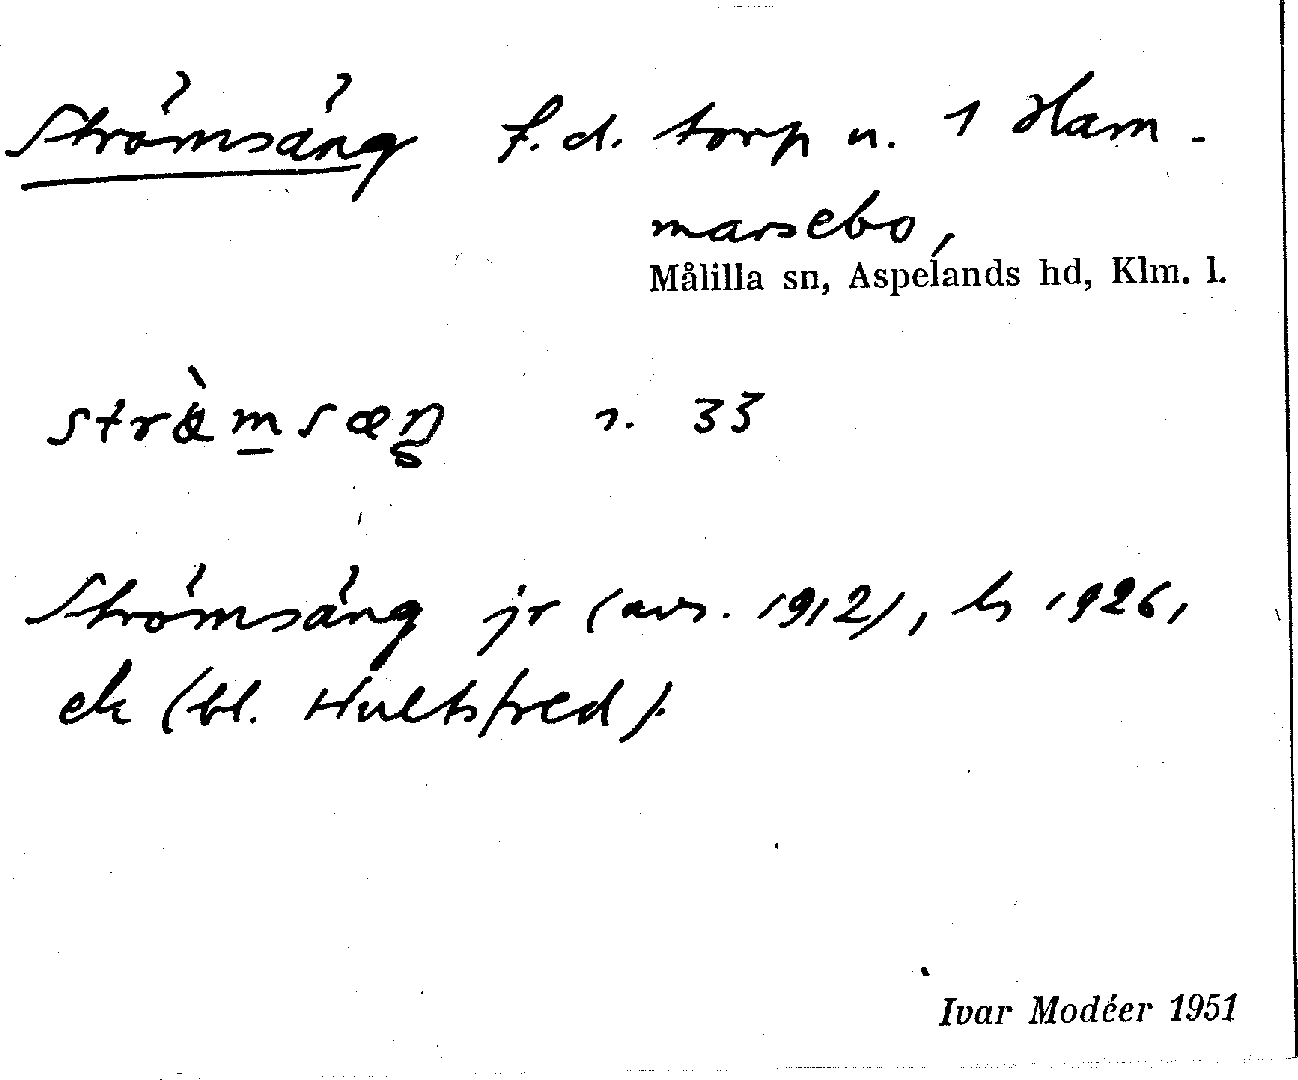 Strömsäng f.d. torp u. 1 Ham-
marsebo,
Målilla sn, Aspelands hd, Klm. l.
s. 33
Strömsäng jr (avs. 1912), ls 1926,
ek (bl. Hultsfred).
Ivar Modéer 1951